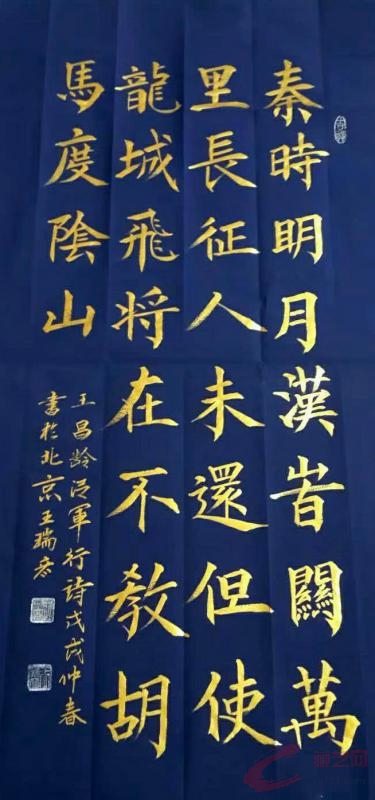 秦時明月漢旹關萬
里長征人未還但使
龍城飛将在不教胡
馬度陰山
王昌龄從軍行詩戊戌仲春
書於北京王瑞彦